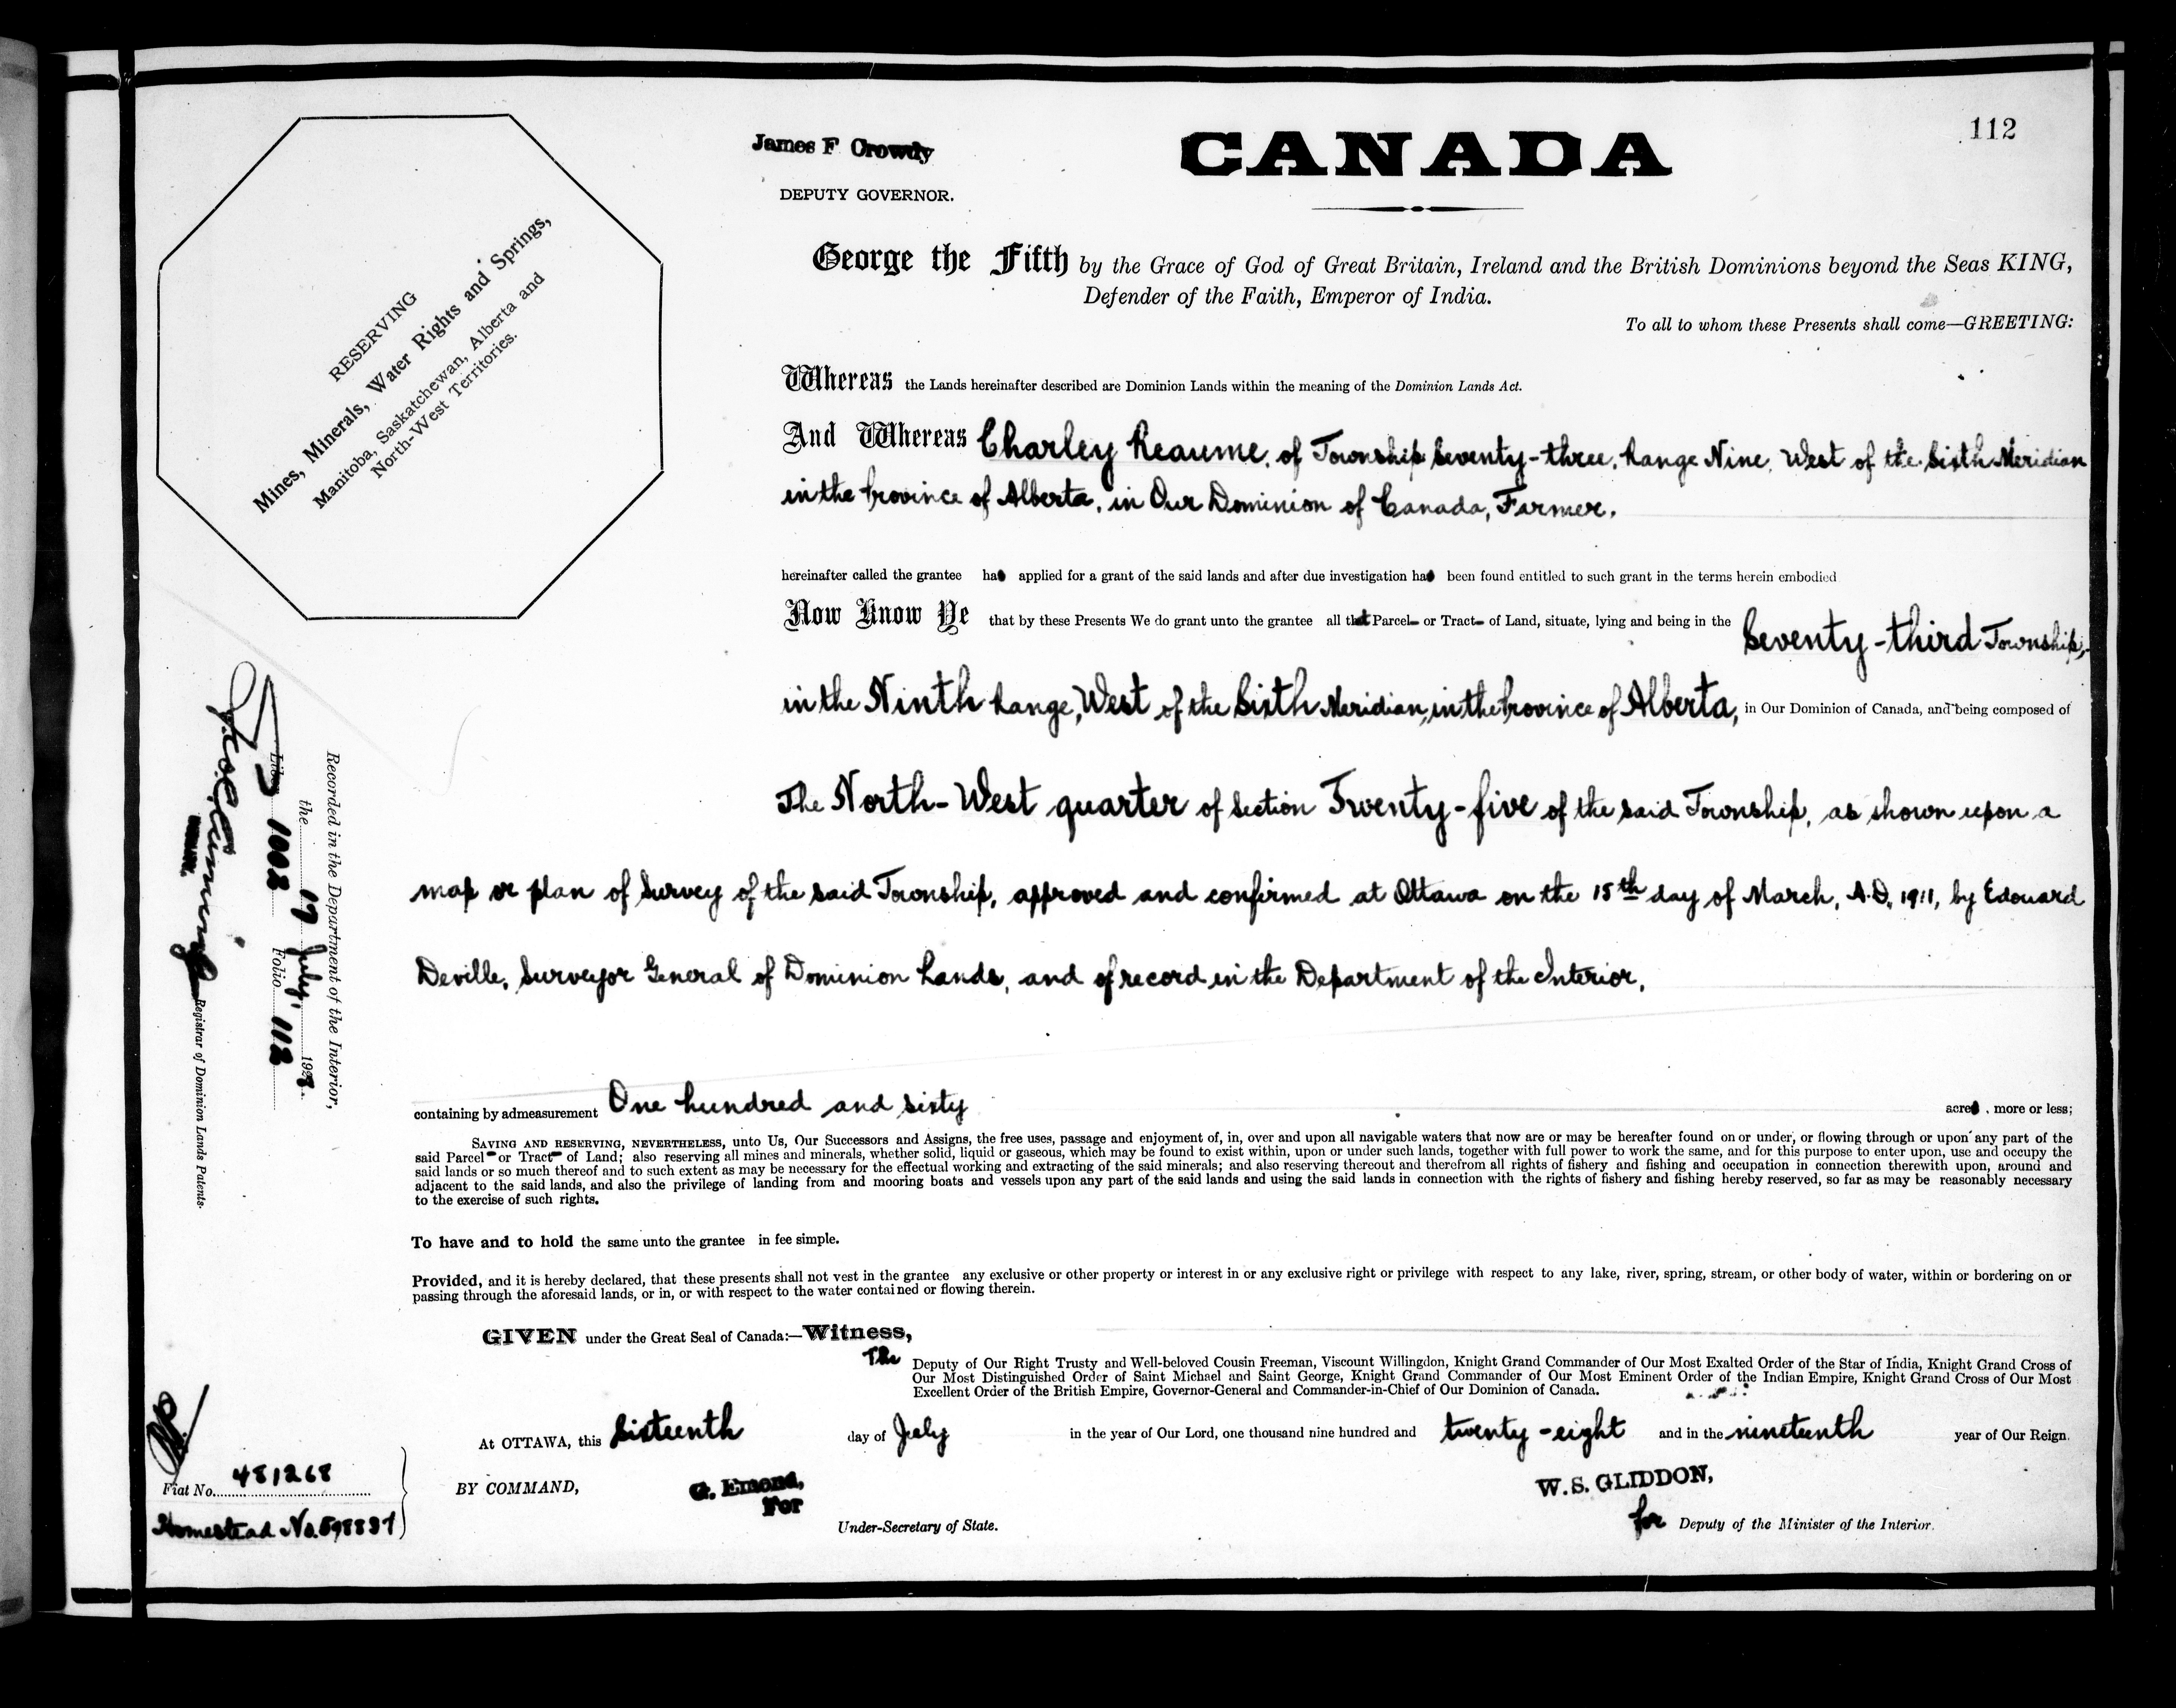 112
James F Crowdy
DEPUTY GOVERNOR.
CANADA
RESERVING
Mines, Minerals, Water Rights and Springs,
Manitoba, Saskatchewan, Alberta and
North-West Territories.
George the Fifth by the Grace of God of Great Britain, Ireland and the British Dominions beyond the Seas KING,
Defender of the Faith, Emperor of India.
To all to whom these Presents shall come—GREETING:
Whereas the Lands hereinafter described are Dominion Lands within the meaning of the Dominion Lands Act.
And Whereas Charley Reaume, of Township Seventy-three, Range Nine, West of the Sixth Meridian
in the Province of Alberta, in Our Dominion of Canada, Farmer.
hereinafter called the grantee has applied for a grant of the said lands and after due investigation has been found entitled to such grant in the terms herein embodied
Now Know Ye that by these Presents We do grant unto the grantee all that Parcel or Tract of Land, situate, lying and being in the Seventy-third Township,
in the Ninth Range, West of the Sixth Meridian, in the Province of Alberta, in Our Dominion of Canada, and being composed of
The North-West quarter of Section Twenty-five of the said Township, as shown upon a
map or plan of Survey of the said Township, approved and confirmed at Ottawa on the 15th day of March, A.D. 1911, by Edouard
Deville, Surveyor General of Dominion Lands, and of record in the Department of the Interior.
containing by admeasurement One hundred and sixty acres, more or less;
SAVING AND RESERVING, NEVERTHELESS, unto Us, Our Successors and Assigns, the free uses, passage and enjoyment of, in, over and upon all navigable waters that now are or may be hereafter found on or under, or flowing through or upon any part of the
said Parcel or Tract of Land; also reserving all mines and minerals, whether solid, liquid or gaseous, which may be found to exist within, upon or under such lands, together with full power to work the same, and for this purpose to enter upon, use and occupy the
said lands or so much thereof and to such extent as may be necessary for the effectual working and extracting of the said minerals; and also reserving thereout and therefrom all rights of fishery and fishing and occupation in connection therewith upon, around and
adjacent to the said lands, and also the privilege of landing from and mooring boats and vessels upon any part of the said lands and using the said lands in connection with the rights of fishery and fishing hereby reserved, so far as may be reasonably necessary
to the exercise of such rights.
To have and to hold the same unto the grantee in fee simple.
Provided, and it is hereby declared, that these presents shall not vest in the grantee any exclusive or other property or interest in or any exclusive right or privilege with respect to any lake, river, spring, stream, or other body of water, within or bordering on or
passing through the aforesaid lands, or in, or with respect to the water contained or flowing therein.
GIVEN under the Great Seal of Canada:—Witness,
The Deputy of Our Right Trusty and Well-beloved Cousin Freeman, Viscount Willingdon, Knight Grand Commander of Our Most Exalted Order of the Star of India, Knight Grand Cross of
Our Most Distinguished Order of Saint Michael and Saint George, Knight Grand Commander of Our Most Eminent Order of the Indian Empire, Knight Grand Cross of Our Most
Excellent Order of the British Empire, Governor-General and Commander-in-Chief of Our Dominion of Canada.
At OTTAWA, this Sixteenth day of July in the year of Our Lord, one thousand nine hundred and twenty-eight and in the nineteenth year of Our Reign.
BY COMMAND,
G. Emond,
For
Under-Secretary of State.
W. S. GLIDDON,
for Deputy of the Minister of the Interior.
Recorded in the Department of the Interior,
the 17 July, 1928.
Liber 1002 Folio 112
Registrar of Dominion Lands Patents.
Fiat No. 481268
Homestead No. 598837